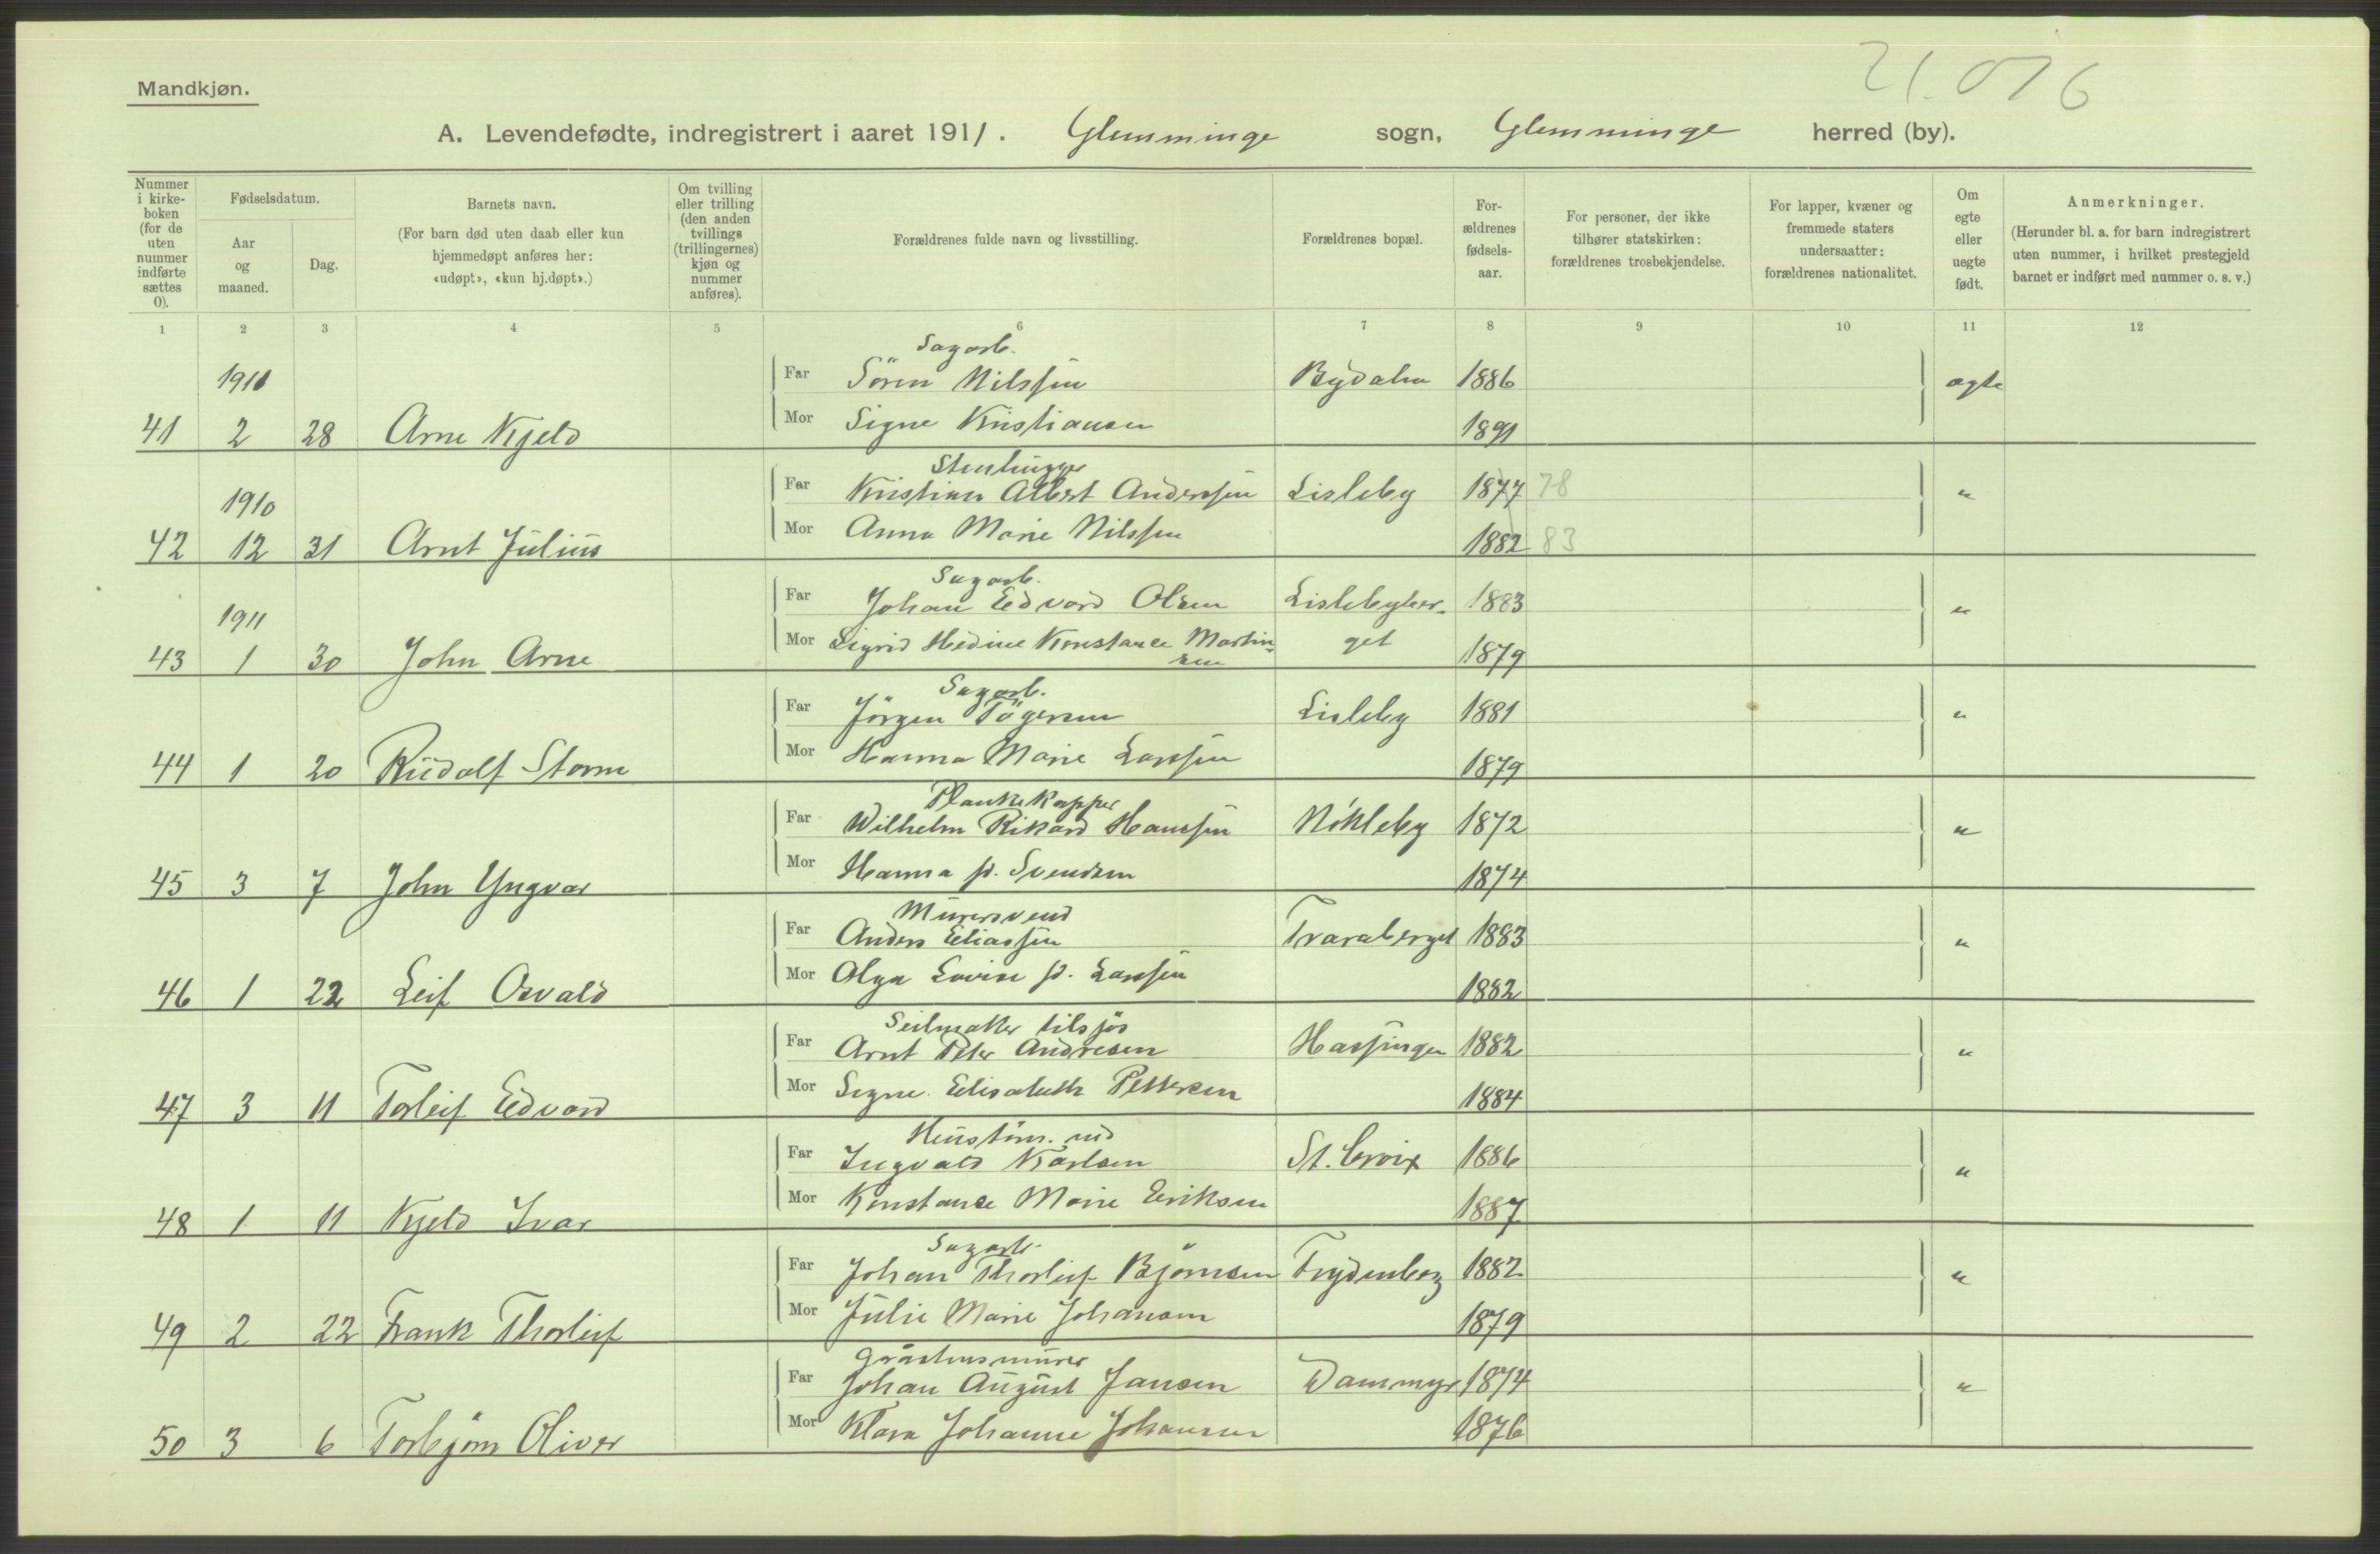 21.076
Mandkjøn.
A. Levendefødte, indregistrert i aaret 1911. Glemminge sogn, Glemminge herred (by).
Nummer i kirke-boken (for de uten nummer indførte sættes 0).
Fødselsdatum.
Aar og maaned.
Dag.
Barnets navn.
(For barn død uten daab eller kun hjemmedøpt anføres her: «udøpt», «kun hj.døpt».)
Om tvilling eller trilling (den anden tvillings (trillingernes) kjøn og nummer anføres).
Forældrenes fulde navn og livsstilling.
Forældrenes bopæl.
For-ældrenes fødsels-aar.
For personer, der ikke tilhører statskirken: forældrenes trosbekjendelse.
For lapper, kvæner og fremmede staters undersaatter: forældrenes nationalitet.
Om egte eller uegte født.
Anmerkninger.
(Herunder bl. a. for barn indregistrert uten nummer, i hvilket prestegjeld barnet er indført med nummer o. s. v.)
1 2 3 4 5 6 7 8 9 10 11 12
Sagarb.
1911 Far Søren Nilssen Bydalen 1886 ægte
41 2 28 Arne Kjeld Mor Signe Kristiansen 1891
Stenhugger
1910 Far Kristian Albert Anderssen Lisleby 1877 78 "
42 12 31 Arnt Julius Mor Anna Marie Nilssen 1882 83
Sagarb.
1911 Far Johan Edvard Olsen Lislebyber- 1883 "
43 1 30 John Arne Mor Sigrid Hedine Konstance Martin-sen get 1879
Sagarb.
Far Jörgen Tögersen Lisleby 1881 "
44 1 20 Rudolf Storm Mor Hanna Marie Larssen 1879
Plankekapper
Far Wilhelm Rikard Hanssen Nökleby 1872 "
45 3 7 John Yngvar Mor Hanna f. Svendsen 1874
Murersvend
Far Anders Eliassen Traraberget 1883 "
46 1 22 Leif Osvald Mor Olga Lovise f. Larssen 1882
Seilmaker tilsjös
Far Arnt Peter Andresen Hassingen 1882 "
47 3 11 Torleif Edvard Mor Signe Elisabeth Pettersen 1884
Far Ingvald Karlsen St. Croix 1886 "
48 1 11 Kjeld Ivar Mor Konstance Marie Eriksen 1887
Sagarb.
Far Johan Thorleif Björnsen Frydenberg 1882 "
49 2 22 Frank Thorleif Mor Julie Marie Johansen 1879
Gråstensmurer
Far Johan August Jansen Dammyr 1874 "
50 3 6 Torbjörn Oliver Mor Klara Johanne Johansen 1876